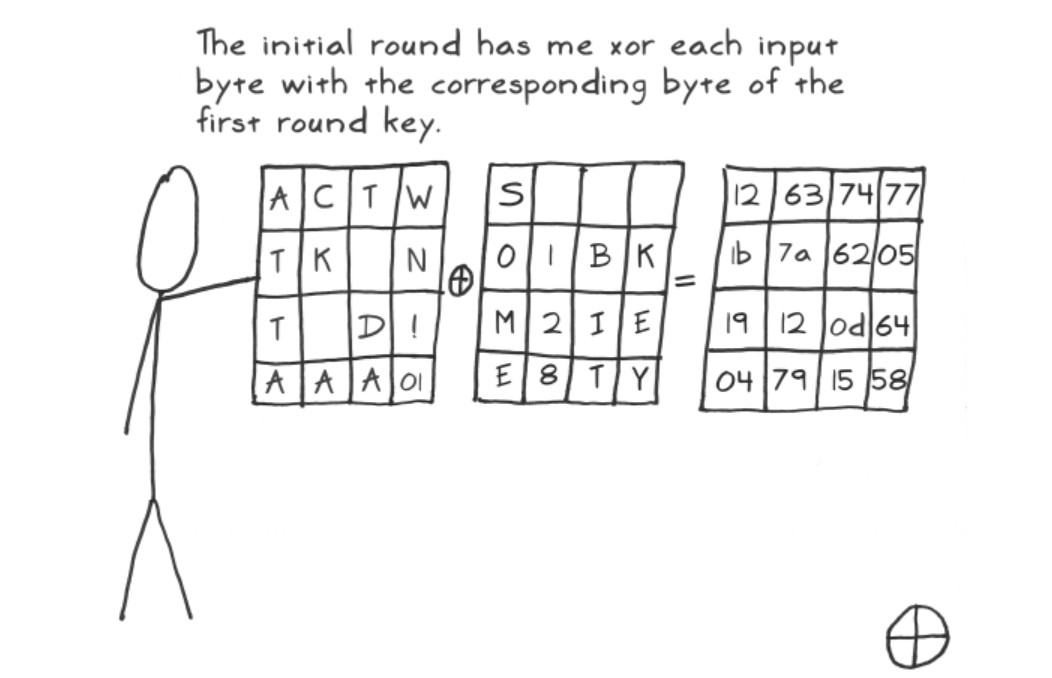 The initial round has me xor each input
byte with the corresponding byte of the
first round key.
A C T W
T K N
T D !
A A A 01
⊕
S
O 1 B K
M 2 I E
E 8 T Y
=
12 63 74 77
1b 7a 62 05
19 12 0d 64
04 79 15 58